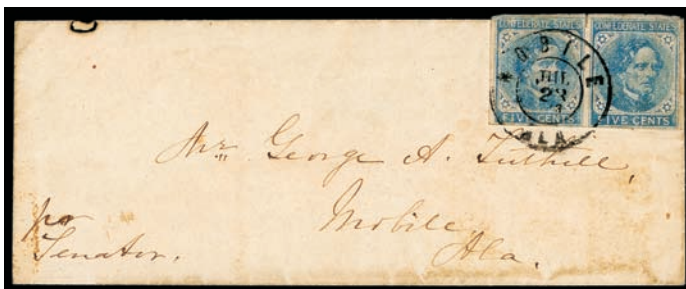 CONFEDERATE STATES CONFEDERATE STATES
FIVE CENTS FIVE CENTS
MOBILE
JUL
23
ALA
Mr. George A. Tuthill,
Mobile
Ala.
per
Senator.